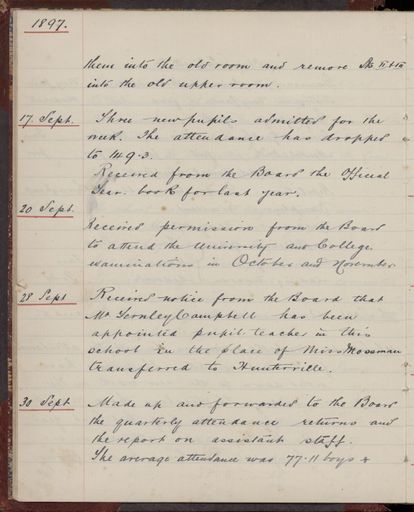 1897.
them into the old room and remove Stds II & III
into the old upper room.
17 Sept. Three new pupils admitted for the
week. The attendance has dropped
to 149.3.
Received from the Board the Official
Year. book for last year.
20 Sept.
Received permission from the Board
to attend the University and College
examinations in October and November
28 Sept Received notice from the Board that
Mr Campbell has been
appointed pupil teacher in this
school in the place of Miss Mossman
transferred to Hunterville.
30 Sept Made up and forwarded to the Board
the quarterly attendance returns and
the report on assistant staff.
The average attendance was 77.11 boys &